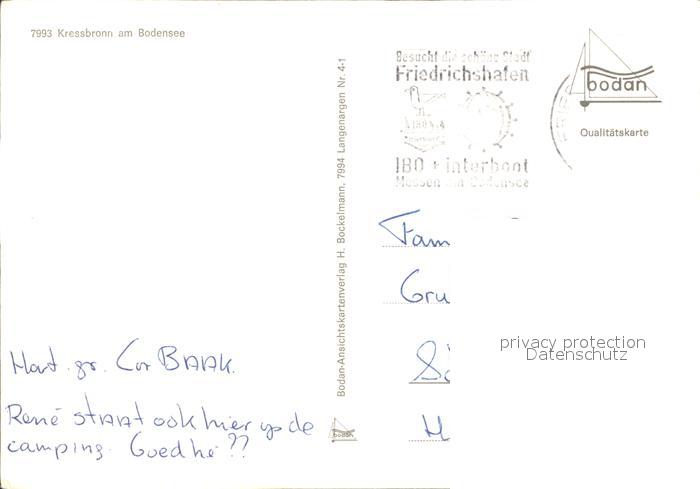 7993 Kressbronn am Bodensee
Besucht die schöne Stadt
Friedrichshafen
IBO + interboot
Messen am Bodensee
bodan
Qualitätskarte
Bodan-Ansichtskartenverlag H. Bockelmann, 7994 Langenargen Nr. 4-1
Fam
Gru
H
privacy protection
Datenschutz
Hart. gr. Cor BAAK.
René staat ook hier op de
camping. Goed hé ??
bodan